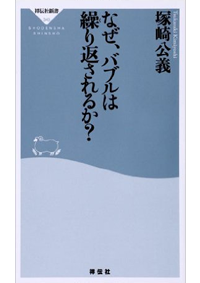 なぜ、バブルは
繰り返されるか?
塚崎公義
Tsukasaki Kimiyoshi
祥伝社新書
SHODENSHA
SHINSHO
祥伝社